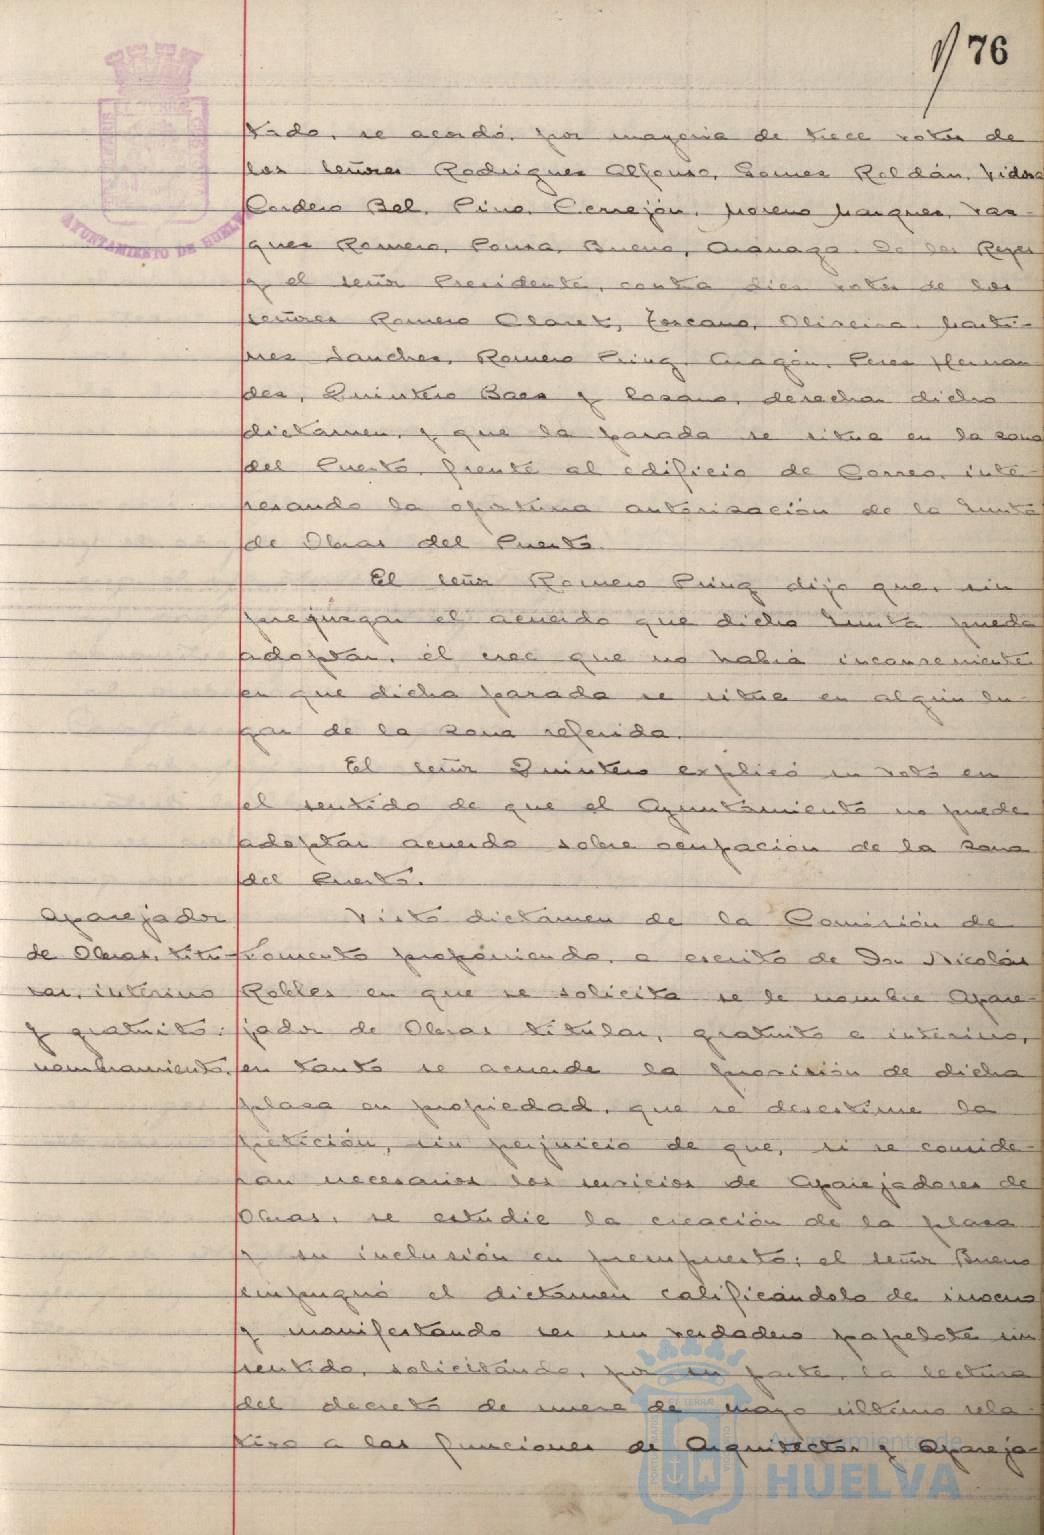 76
tado, se acordó, por mayoria de trece votos de
los señores Rodriguez Alfonso, Gomez Roldán, Vidosa
Cordero Bel, Pino, Cerrejón, Moreno Marquez, Vaz-
quez Romero, Ponsa, Bueno, de los Reyes
y el señor Presidente, contra diez votos de los
señores Romero Claret, Toscano, Oliveira, Marti-
nez Sanchez, Romero Pring, Aragón, Perez Hernan
dez, Quintero Baez y Lozano, desechar dicho
dictámen, y que la parada se situe en la zona
del Puerto, frente al edificio de Correo, inte-
resando la oportuna autorización de la Junta
de Obras del Puerto.
El señor Romero Pring dijo que, sin
prejuzgar el acuerdo que dicha Junta pueda
adoptar, él cree que no habrá inconveniente
en que dicha parada se situe en algún lu-
gar de la zona referida.
El señor Quintero explicó su voto en
el sentido de que el Ayuntamiento no puede
adoptar acuerdo sobre ocupación de la zona
del Puerto.
Aparejador
de Obras, titu-
lar, interino
y gratuito:
nombramiento.
Visto dictamen de la Comisión de
Fomento proponiendo, a escrito de Don Nicolás
Robles en que se solicita se le nombre Apare-
jador de Obras titular, gratuito e interino,
en tanto se acuerde la provisión de dicha
plaza en propiedad, que se desestime la
petición, sin perjuicio de que, si se conside-
ran necesarios los servicios de Aparejadores de
Obras, se estudie la creación de la plaza
y su inclusión en presupuesto; el señor Bueno
impugnó el dictamen calificándolo de inocuo
y manifestando ser un verdadero papelote sin
sentido, solicitando, por su parte, la lectura
del decreto de nueve de mayo último rela-
tivo a las funciones de Arquitectos y Apareja-
AYUNTAMIENTO DE HUELVA
Ayuntamiento de
HUELVA